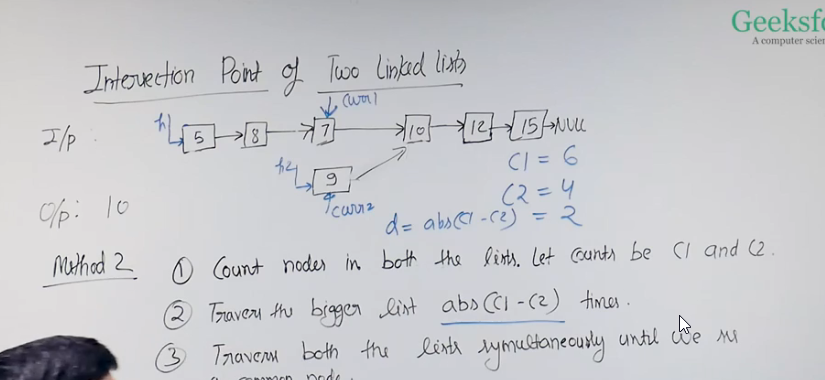 Geeksfo
A computer scien
Intersection Point of Two linked lists
curr1
I/p : h1 5 8 7 10 12 15 NULL
h2 9
curr2
C1 = 6
C2 = 4
d = abs(C1 - C2) = 2
O/p: 10
Method 2
① Count nodes in both the lists. Let Counts be C1 and C2.
② Travers the bigger list abs(C1-C2) times.
③ Travers both the lists symultaneously until we
a common node.